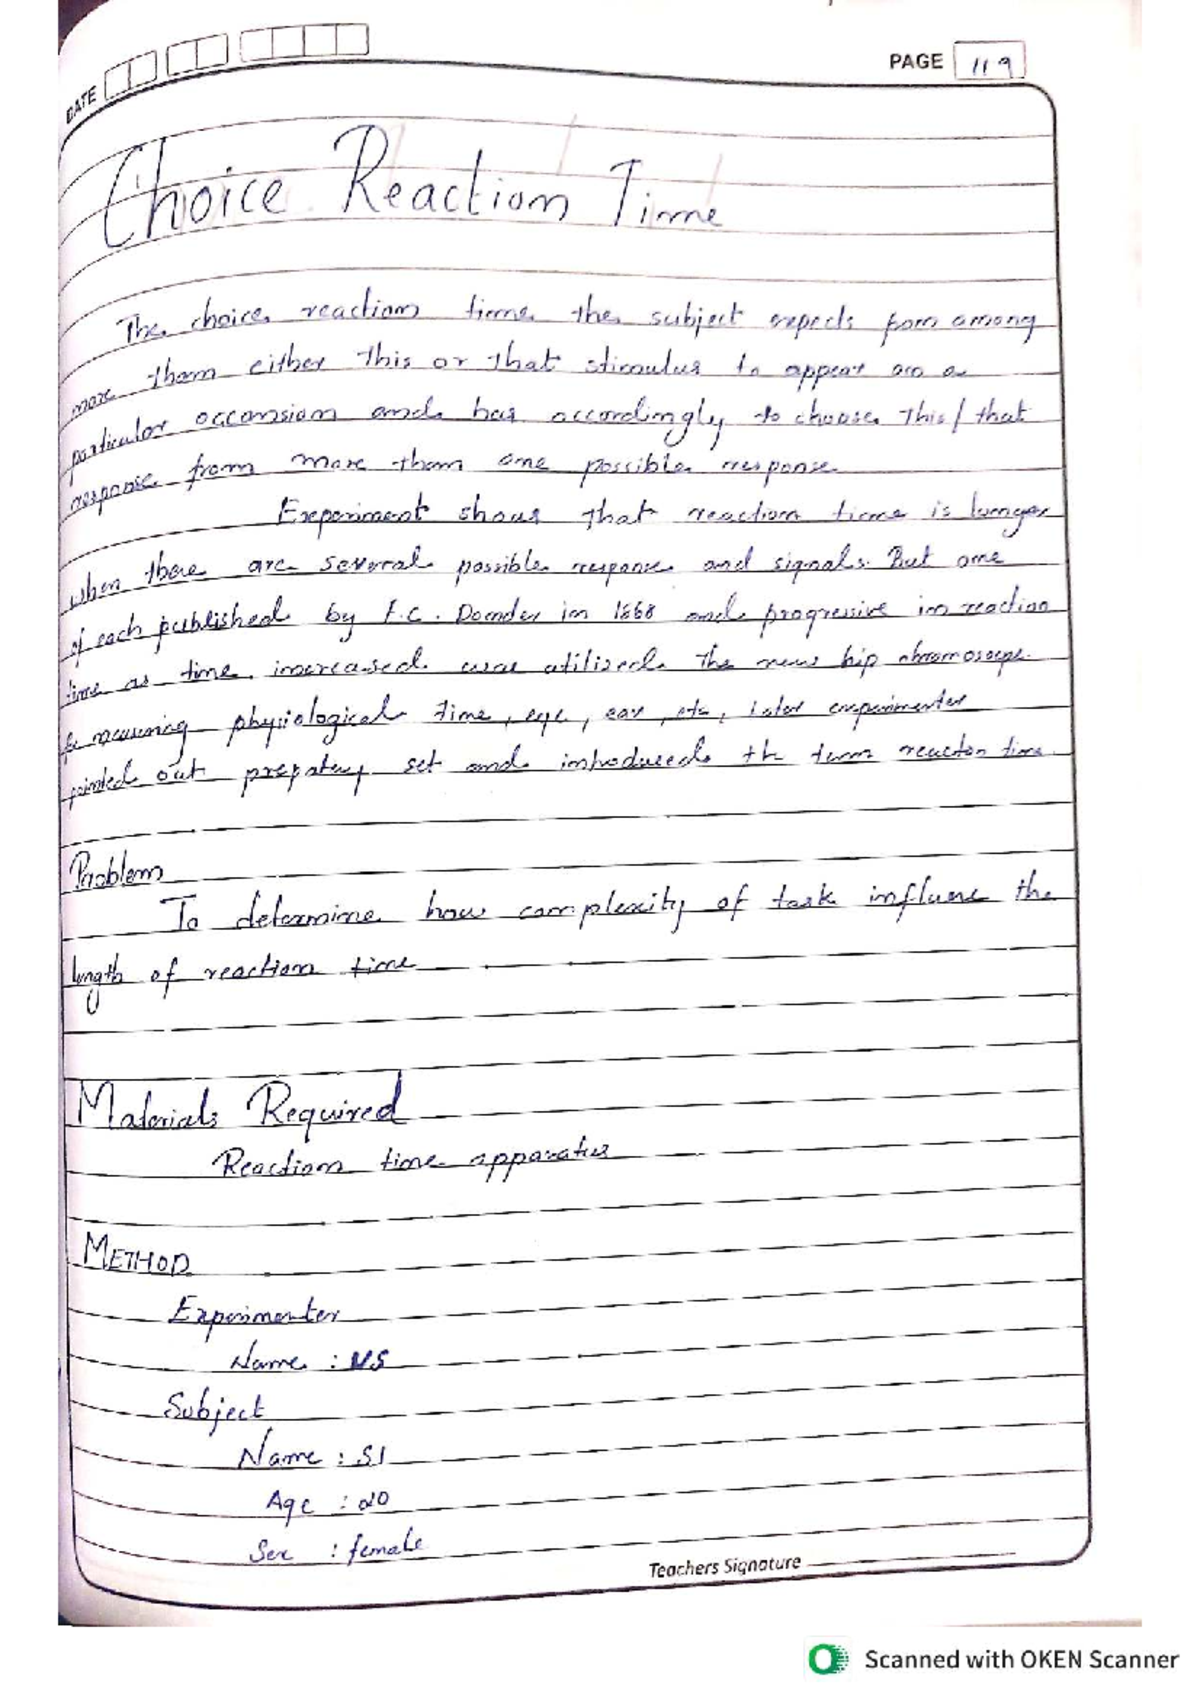 DATE
PAGE 119
Choice Reaction Time
The choice reaction time the subject expects from among
more them either this or that stimulus to appear on a
particular occansion and has accordingly to choose this/that
response from more them one possible response
Experiment shows that reaction time is longer
when there are several possible response and signals. But one
of each published by F.C. Donder in 1868 and progressive in reaction
time as time increased was utilized the new hip chromoscope
for measuring physiological time, eye, ear, etc, later experimenter
pointed out prepatory set and introduced th term reaction time
Problem
To determine how complexity of task influence the
length of reaction time
Materials Required
Reaction time apparatus
METHOD
Experimenter
Name : NS
Subject
Name : SI
Age : 20
Sex : female
Teachers Signature
Scanned with OKEN Scanner